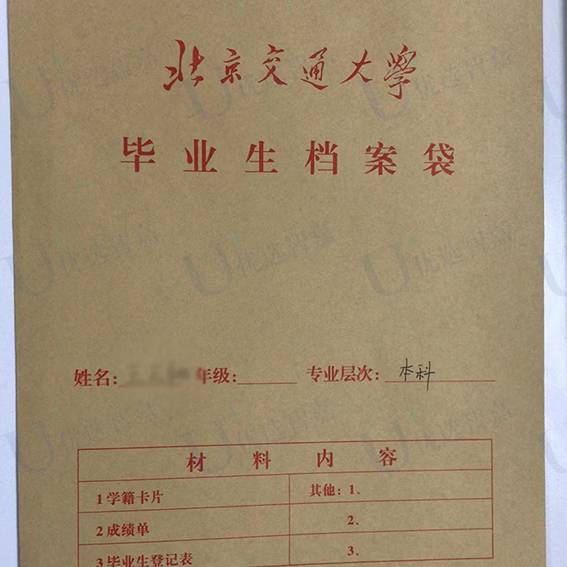 北京交通大學
毕业生档案袋
姓名: 年级: 专业层次: 本科
材料内容
1学籍卡片 其他: 1、
2成绩单 2、
3毕业生登记表 3、